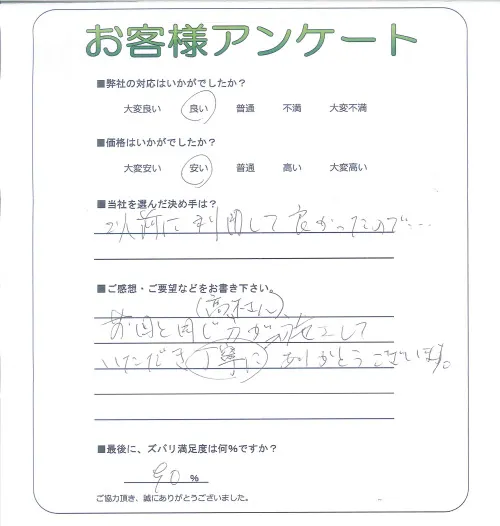 お客様アンケート
■弊社の対応はいかがでしたか？
大変良い 良い 普通 不満 大変不満
■価格はいかがでしたか？
大変安い 安い 普通 高い 大変高い
■当社を選んだ決め手は？
以前に利用して良かったので…
■ご感想・ご要望などをお書き下さい。
(高村さん)
前回と同じ方が施工して
いただき丁寧にありがとうございます。
■最後に、ズバリ満足度は何%ですか？
90 %
ご協力頂き、誠にありがとうございました。